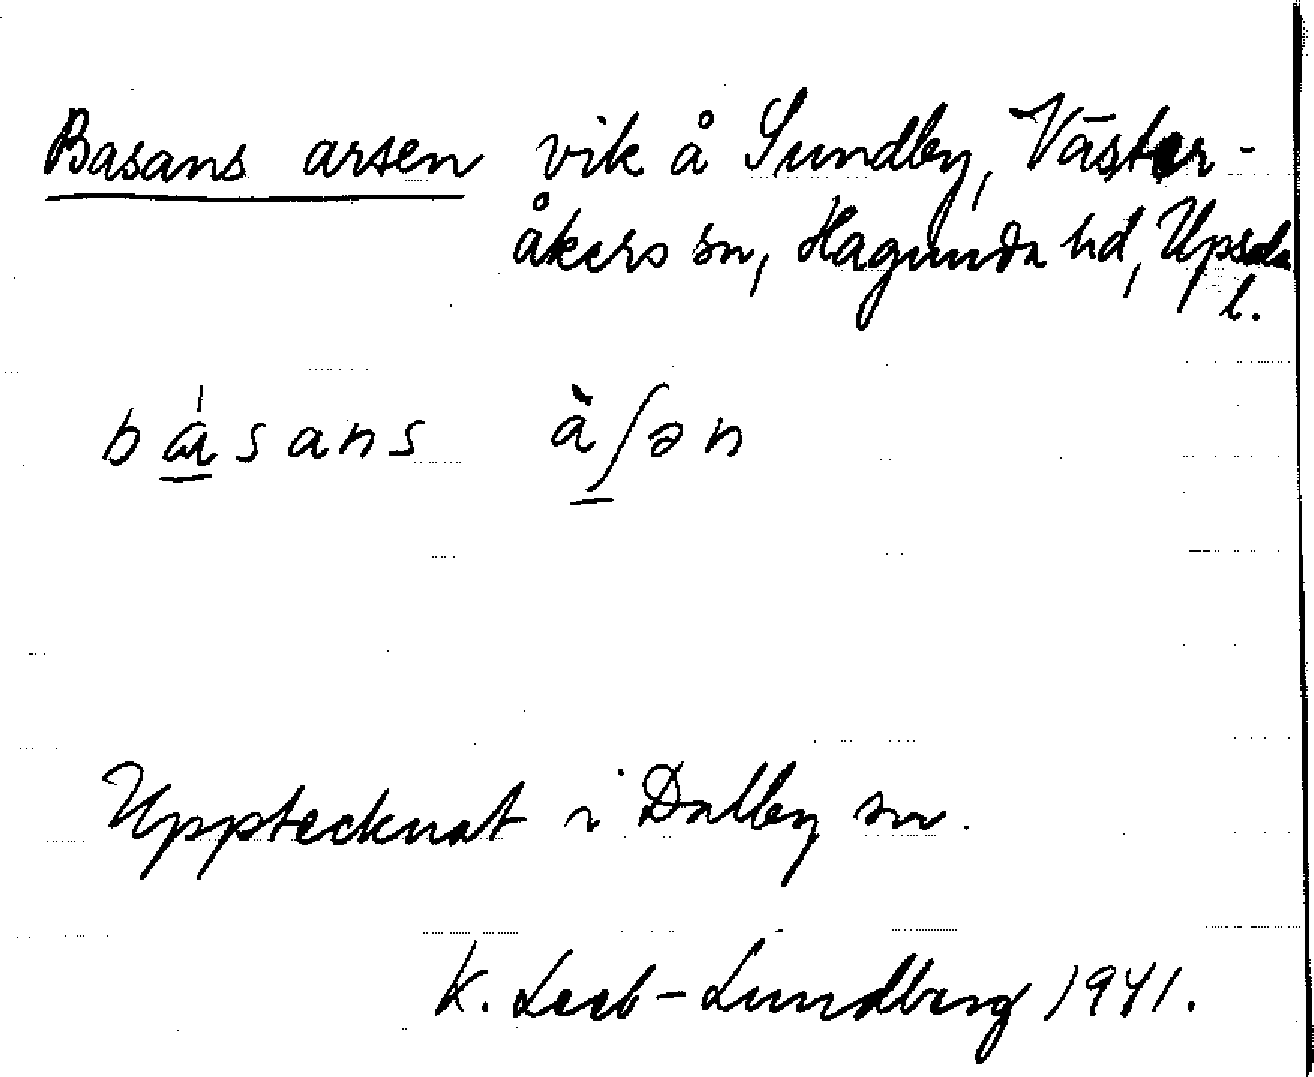 Basans arsen vik å Sundby, Väster-
åkers sn, Hagunda hd, Upsala
l.
bása̱ns àʃən
Upptecknat i Dalby sn.
K. Leeb-Lundberg 1941.